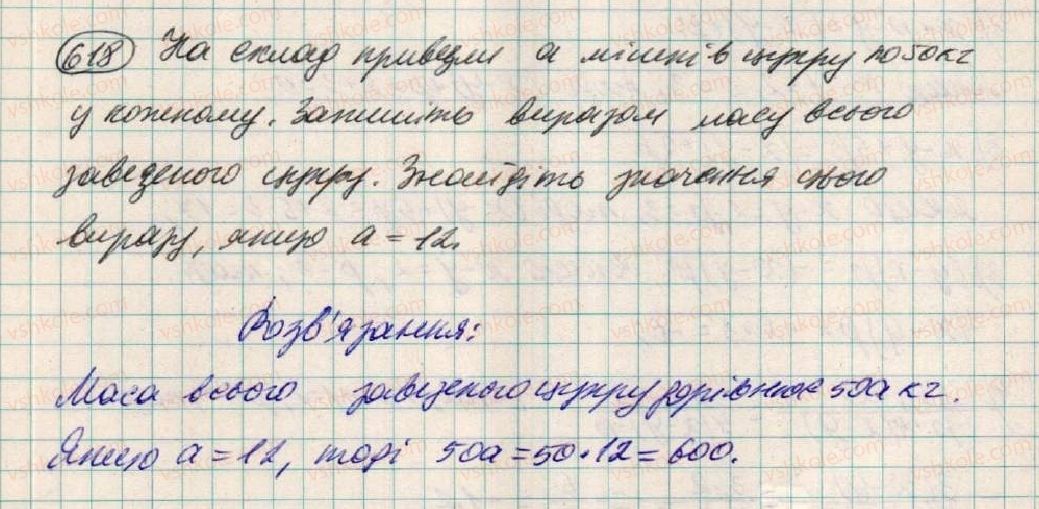 618 На склад привезли a мішків цукру по 50 кг
у кожному. Запишіть виразом масу всього
завезеного цукру. Знайдіть значення цього
виразу, якщо a = 12.
Розв'язання:
Маса всього завезеного цукру дорівнює 50a кг.
Якщо a = 12, тоді 50a = 50 · 12 = 600.